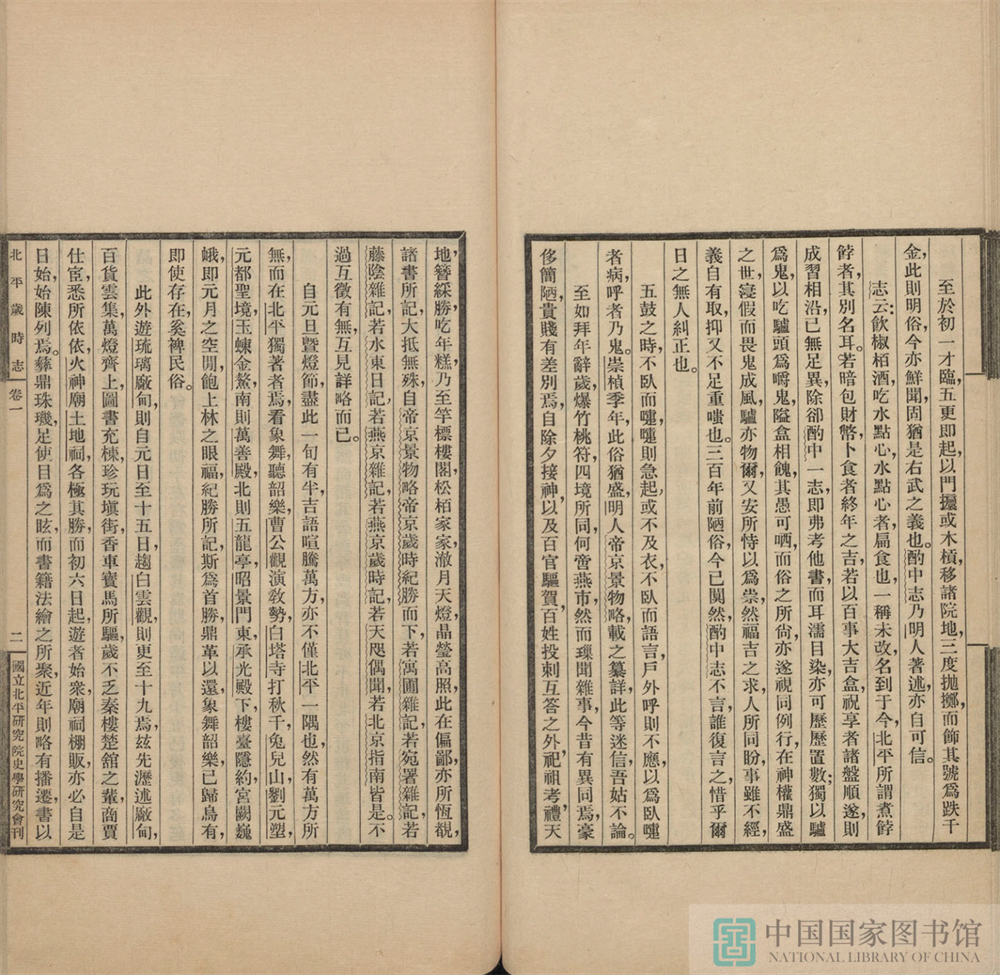 至於初一才臨，五更即起，以門攩或木槓，移諸院地，三度拋擲，而飾其號爲跌千
金，此則明俗，今亦鮮聞，固猶是右武之義也。酌中志乃明人著述，亦自可信。
志云：飲椒柏酒，吃水點心，水點心者，扁食也，一稱未改，名到于今，北平所謂煮餑
餑者，其別名耳。若暗包財幣，卜食者終年之吉，若以百事大吉盒，祝享者諸盤順遂，則
成習相沿，已無足異，除卻酌中一志，即弗考他書，而耳濡目染，亦可歷歷置數；獨以驢
爲鬼，以吃驢頭爲嚼鬼，隘盒相餽，其愚可哂，而俗之所尙，亦遂視同例行，在神權鼎盛
之世，寖假而畏鬼成風，驢亦物爾，又安所恃以爲祟，然福吉之求，人所同盼，事雖不經，
義自有取，抑又不足重嗤也。三百年前陋俗，今已闃然，酌中志不言，誰復言之，惜乎爾
日之無人糾正也。
五鼓之時，不臥而嚏，嚏則急起，或不及衣，不臥而語言，戶外呼則不應，以爲臥嚏
者病，呼者乃鬼。崇楨季年，此俗猶盛，明人帝京景物略，載之纂詳，此等迷信，吾姑不論。
至如拜年辭歲，爆竹桃符，四境所同，何啻燕市，然而瑮聞雜事，今昔有異同焉，豪
侈簡陋，貴賤有差別焉，自除夕接神，以及百官驅賀，百姓投刺，互答之外，祀祖考，禮天
地，簪綵勝，吃年糕，乃至竿標樓閣，松栢家家，澈月天燈，晶瑩高照，此在偏鄙，亦所恆覩，
諸書所記，大抵無殊，自帝京景物略，帝京歲時紀勝而下，若寓圃雜記，若宛署雜記，若
藤陰雜記，若水東日記，若燕京雜記，若燕京歲時記，若天咫偶聞，若北京指南皆是。不
過互徵有無，互見詳略而已。
自元旦暨燈節，盡此一旬有半，吉語喧騰，萬方亦不僅北平一隅也，然有萬方所
無，而在北平獨著者焉，看象舞，聽韶樂，曹公觀演敎勢，白塔寺打秋千，兔兒山，劉元塑
元都聖境，玉蝀金鰲，南則萬善殿，北則五龍亭，昭景門東，承光殿下，樓臺隱約，宮闕巍
峨，即元月之空閒，飽上林之眼福，紀勝所記，斯爲首勝，鼎革以還，象舞韶樂，已歸烏有，
即使存在，奚裨民俗。
此外遊琉璃廠甸，則自元日至十五日，趨白雲觀，則更至十九焉，玆先瀝述廠甸，
百貨雲集，萬燈齊上，圖書充棟，珍玩塡街，香車寶馬所驅，歲不乏秦樓楚舘之輩，商賈
仕宦，悉所依依，火神廟，土地祠，各極其勝，而初六日起，遊者始衆，廟祠棚販，亦必自是
日始，始陳列焉。彝鼎珠璣，足使目爲之眩，而書籍法繪之所聚，近年則略有播遷，書以
北平歲時志
卷一
二
國立北平研究院史學研究會刊
中国国家图书馆
NATIONAL LIBRARY OF CHINA